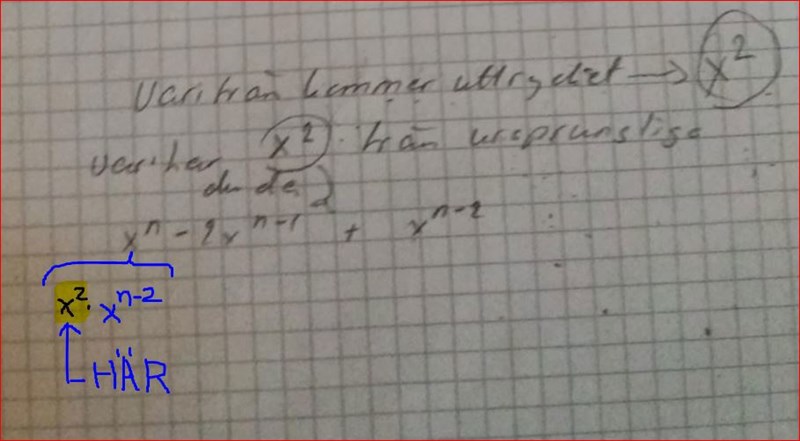 Varifrån kommer uttrycket → x²
Vari har x² från ursprunliga
du de
xⁿ - 2xⁿ⁻¹ + xⁿ⁻²
x² · xⁿ⁻²
HÄR